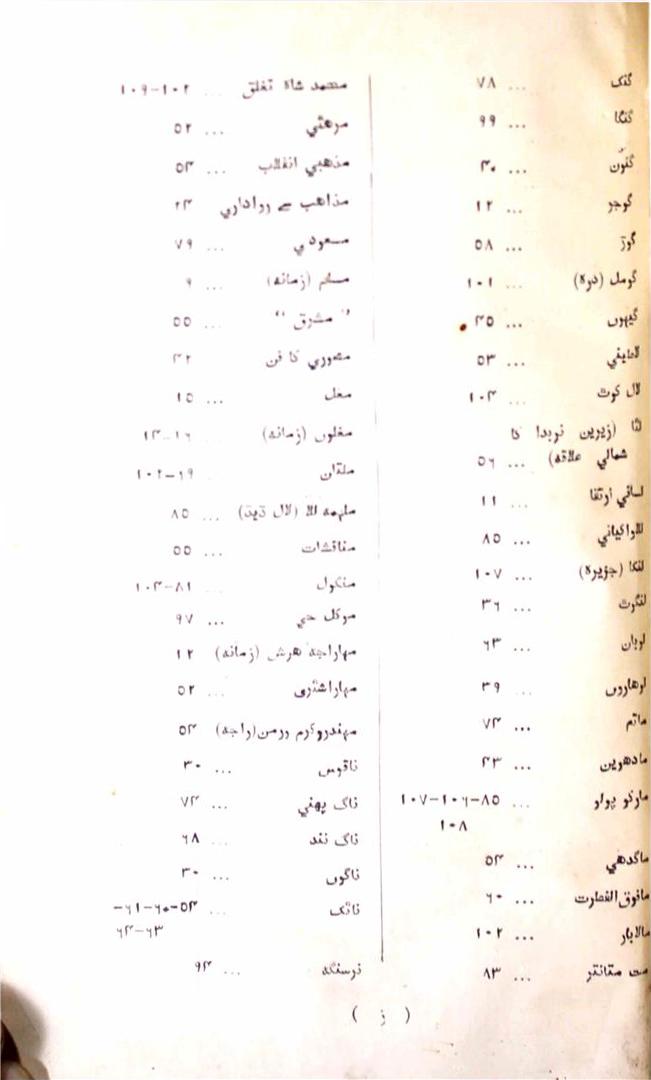 گنگ ... ۷۸
گنگا ... ۹۹
گفون ... ۴۰
گوجر ... ۱۲
گوڑ ... ۵۸
گومل (درہ) ... ۱۰۱
گیہوں ... ۴۵
لاطینی ... ۵۳
لال کوٹ ... ۱۰۴
لٹا (زیریں نربدا کا
شمالي علاقہ) ... ۵۶
لسانی ارتقا ... ۱۱
للاواکیانی ... ۸۵
لنکا (جزیرہ) ... ۱۰۷
لنگوٹ ... ۳۶
لوبان ... ۶۳
لوهاروں ... ۳۹
ماتم ... ۷۴
مادهوین ... ۴۳
مارکو پولو ... ۸۵-۱۰۶-۱۰۷
۱۰۸
ماگدهي ... ۵۴
مافوق الفطرت ... ۶۰
مالابار ... ۱۰۲
مت متانتر ... ۸۳
محمد شاہ تغلق ... ۱۰۲-۱۰۹
مرهٹي ... ۵۲
مذهبي انقلاب ... ۵۴
مذاهب سے رواداري ۲۴
مسعودي ... ۷۹
مسلم (زمانہ) ... ۹
" مشرق " ... ۵۵
مصوري کا فن ... ۴۲
مغل ... ۱۵
مغلوں (زمانہ) ... ۱۶-۱۴
ملتان ... ۱۹-۱۰۲
ملہمہ للا (لال دید) ... ۸۵
مناقشات ... ۵۵
منگول ... ۸۱-۱۰۴
موکل جي ... ۹۷
مہاراجہ هرش (زمانہ) ۱۲
مہاراشٹری ... ۵۲
مہندروکرم ورمن(راجہ) ۵۴
ناقوس ... ۳۰
ناگ پهني ... ۷۴
ناگ نند ... ۶۸
ناگوں ... ۳۰
ناٹک ... ۵۴-۶۰-۶۱-
۶۳-۶۴
نرسنگہ ... ۹۴
( ز )